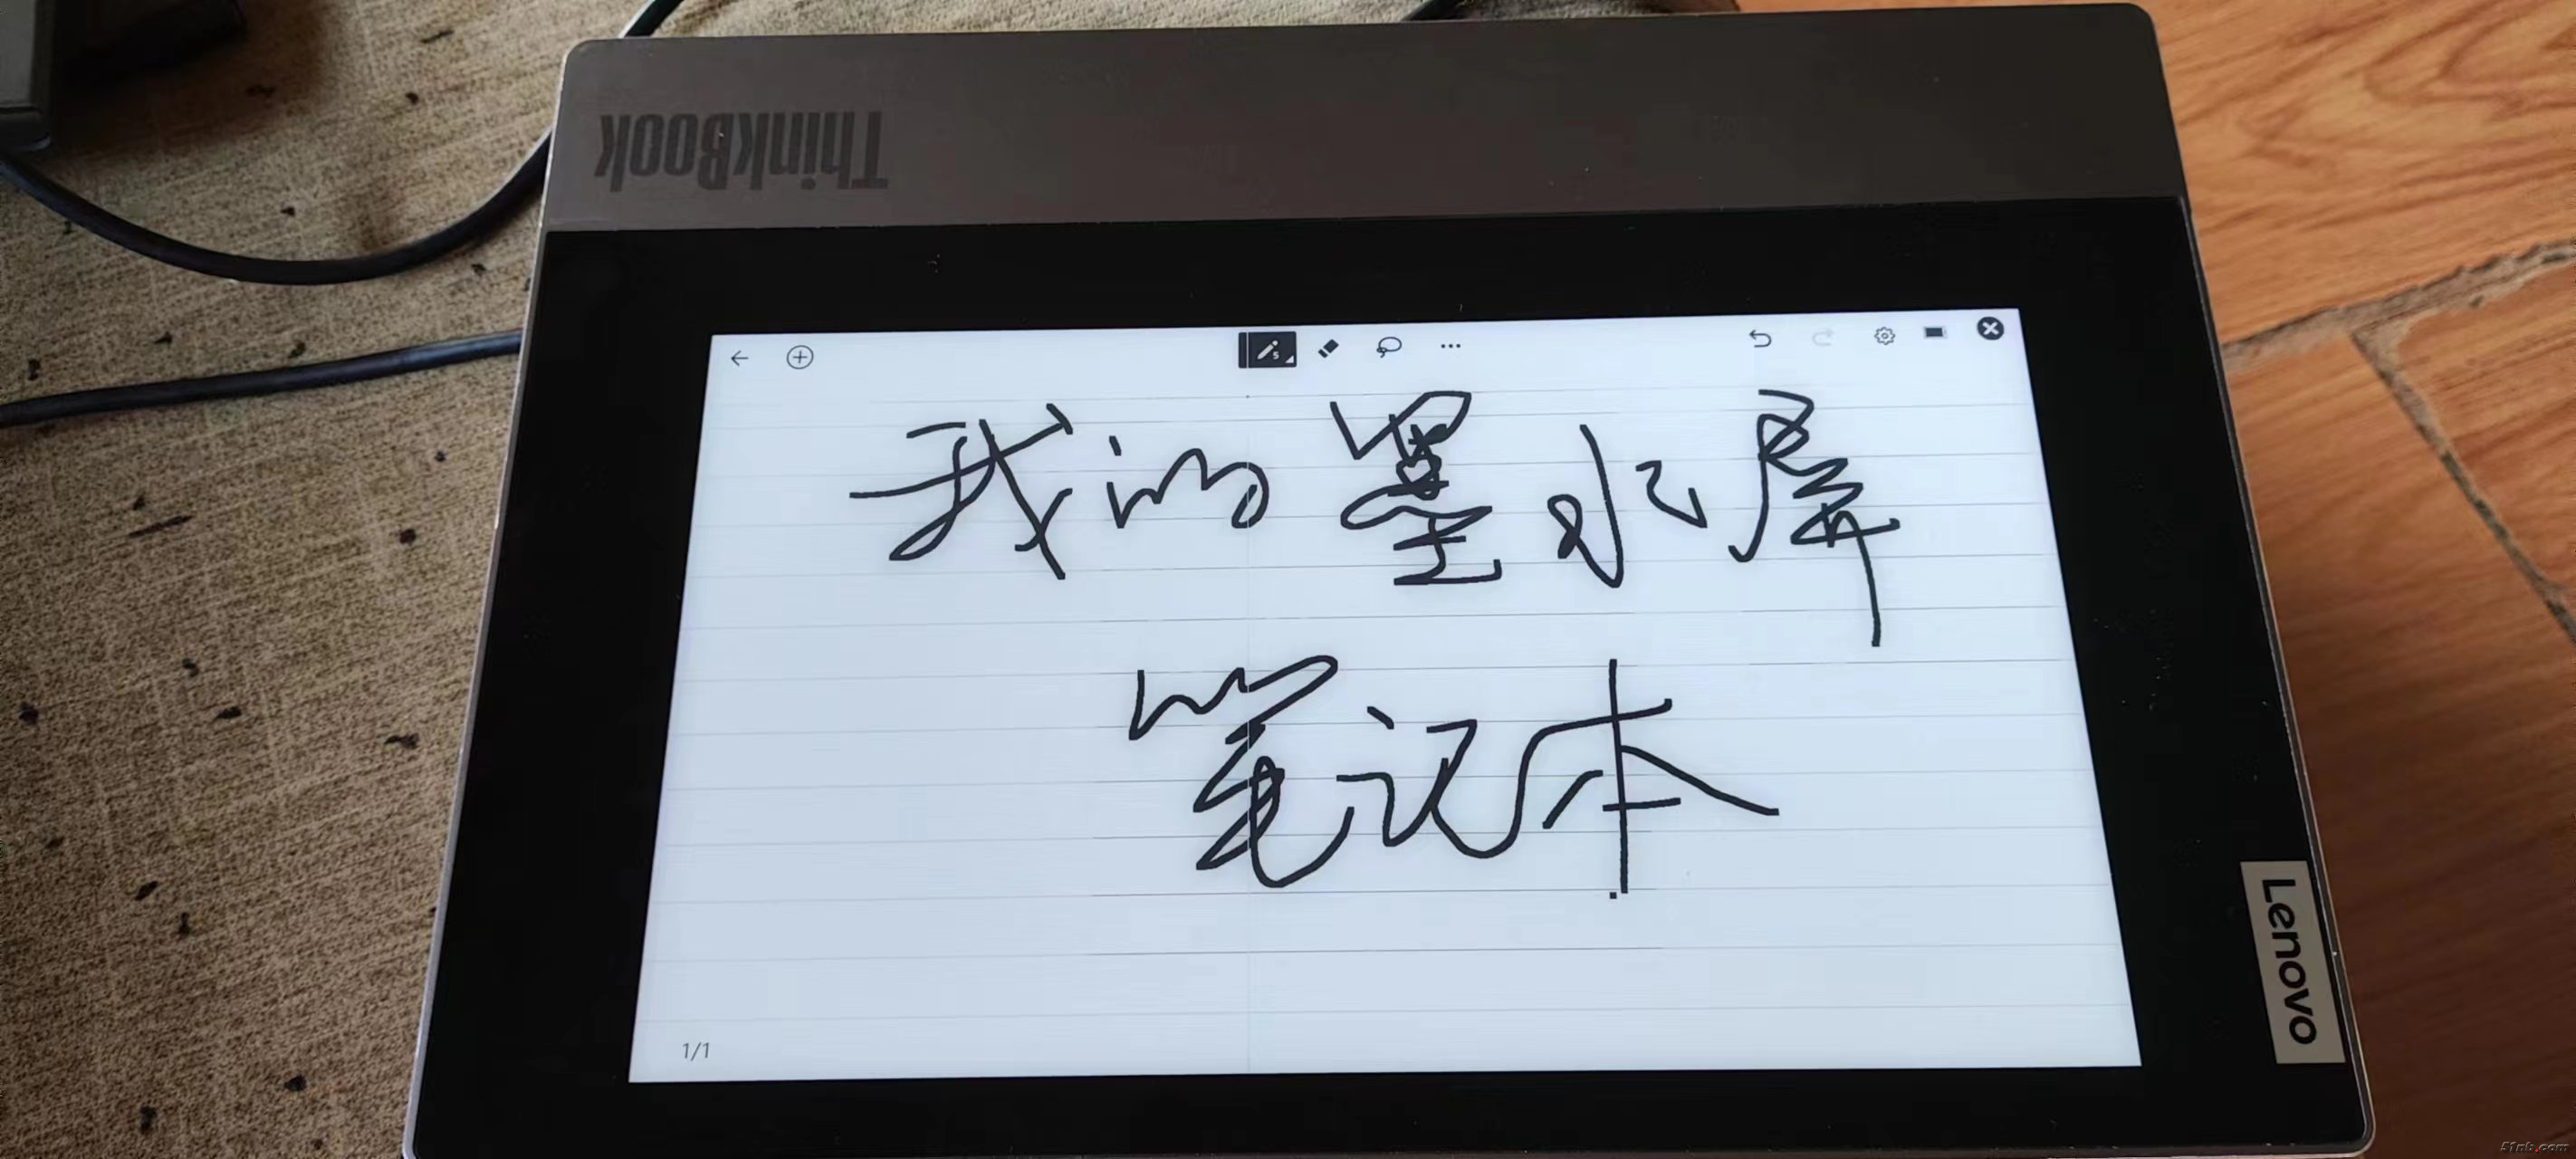 ThinkBook
我的墨水屏
笔记本
1/1
Lenovo
51nb.com